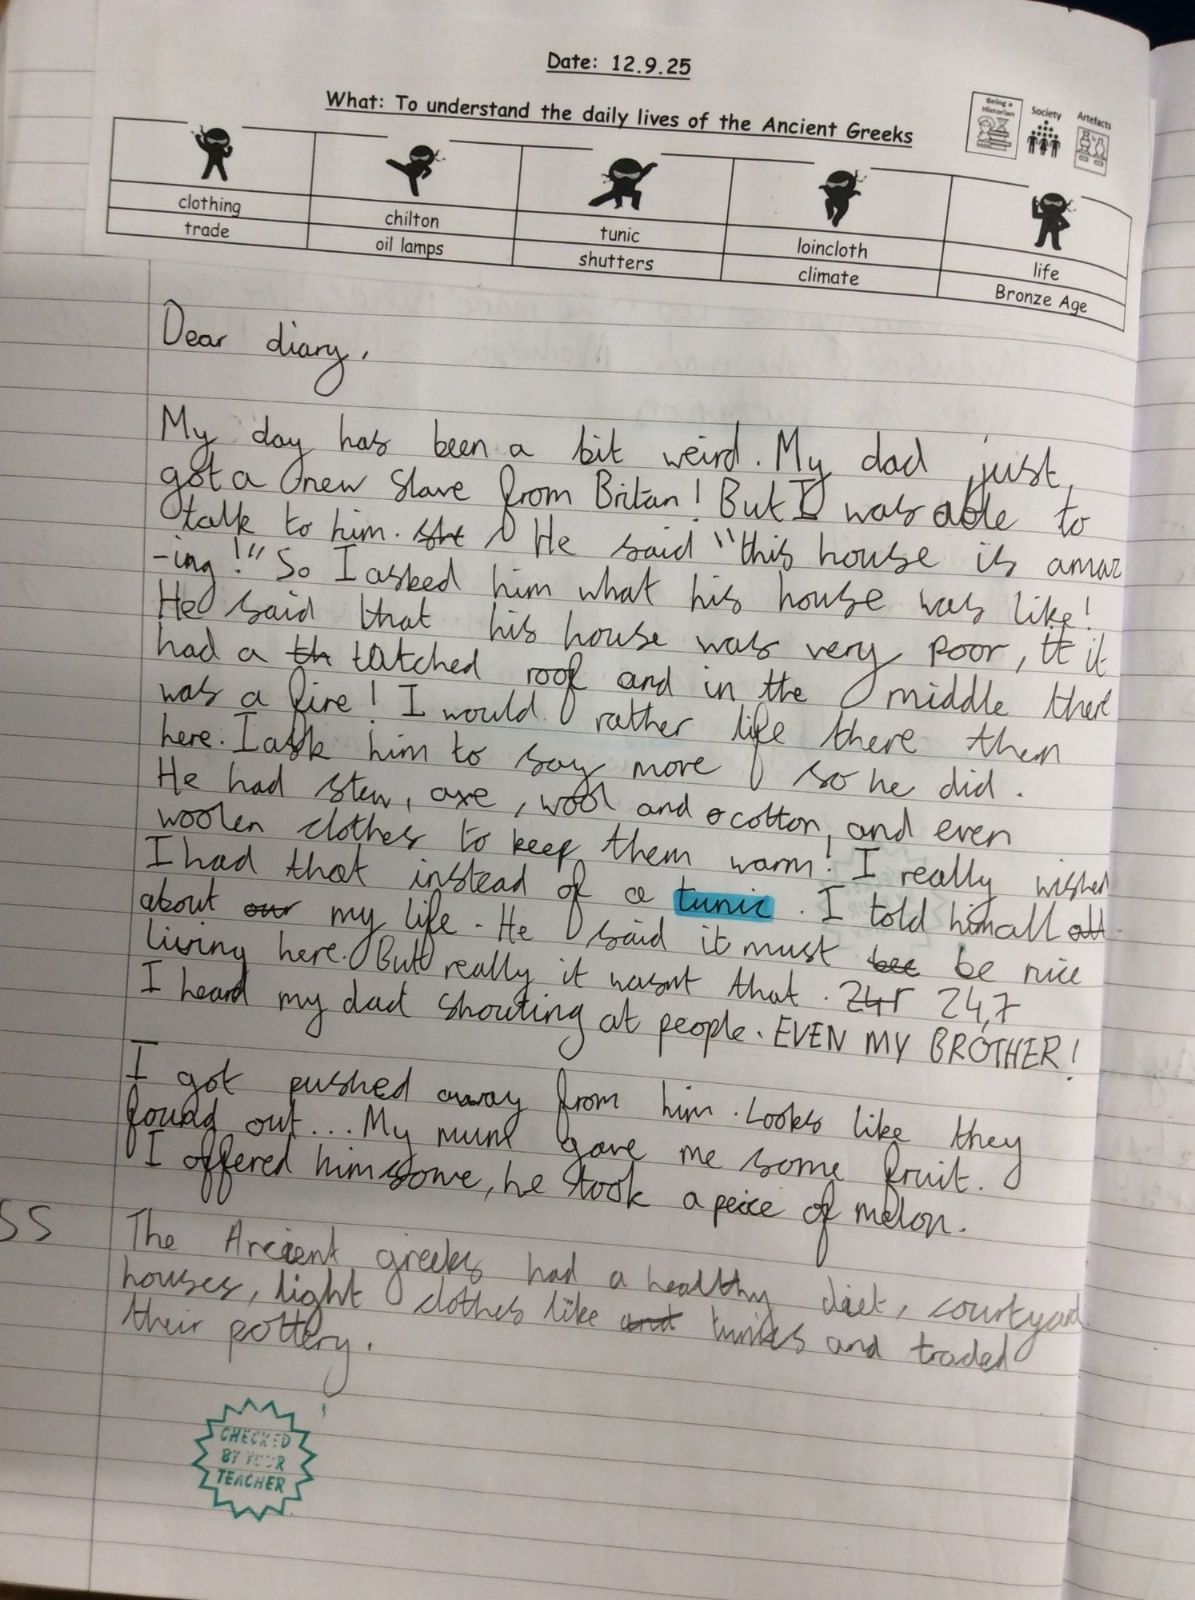 Date: 12.9.25
What: To understand the daily lives of the Ancient Greeks
Being a Historian
Society
Artefacts
clothing chilton tunic loincloth life
trade oil lamps shutters climate Bronze Age
Dear diary,
My day has been a bit weird. My dad just
got a new slave from Britan! But I was able to
talk to him. She He said "this house is amaz
-ing!" So I asked him what his house was like!
He said that his house was very poor, it it
had a th tatched roof and in the middle there
was a fire! I would rather life there then
here. I ask him to say more so he did.
He had stew, axe, wool and cotton, and even
woolen clothes to keep them warm! I really wished
I had that instead of a tunic. I told him all all
about our my life. He said it must bee be nice
living here. But really it wasnt that. 24r 24,7
I heard my dad shouting at people. EVEN MY BROTHER!
I got pushed away from him. Looks like they
found out... My mum gave me some fruit.
I offered him some, he took a peice of melon.
SS The Ancient greeks had a healthy diet, courtyard
houses, light clothes like and tunics and traded
their pottery.
CHECKED
BY YOUR
TEACHER